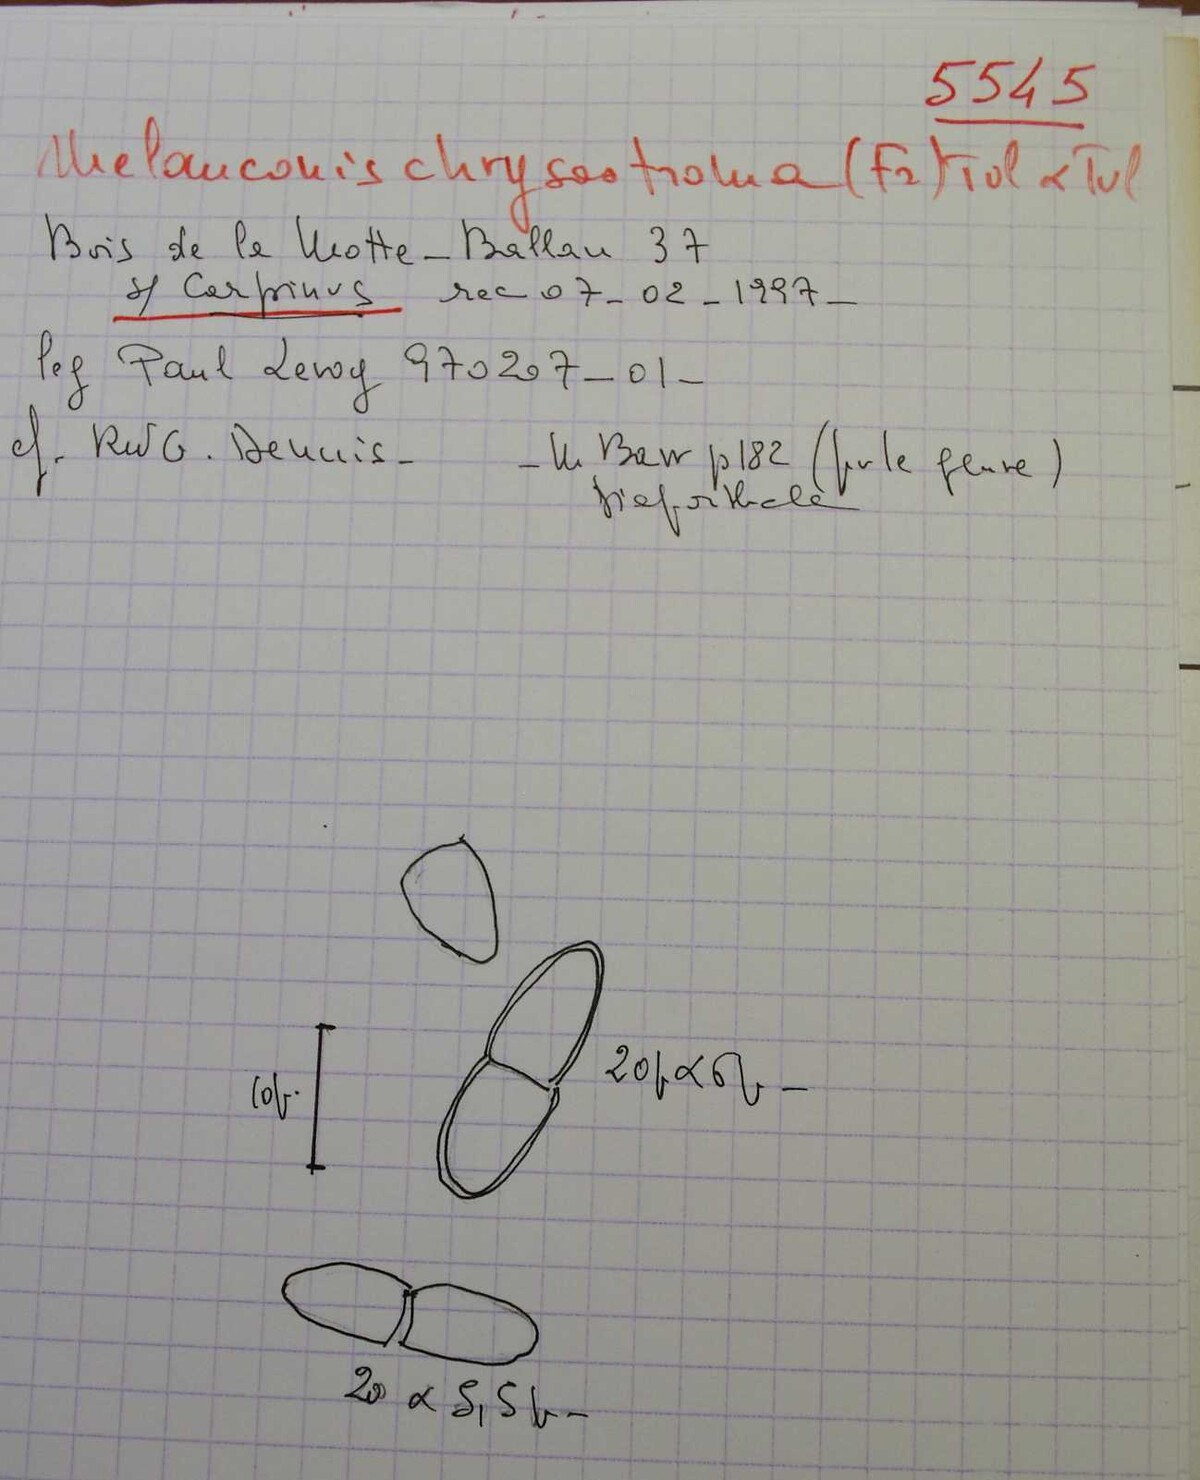 5545
Melanconis chrysostroma (Fr) Tul & Tul
Bois de la Motte - Ballan 37
s/ Carpinus rec 07-02-1997-
leg Paul Leroy 970207-01-
cf. RWG. Dennis- - M. Barr p182 (pr le genre)
Diaporthale
10µ.
20µ x 6µ -
20 x 5,5µ -